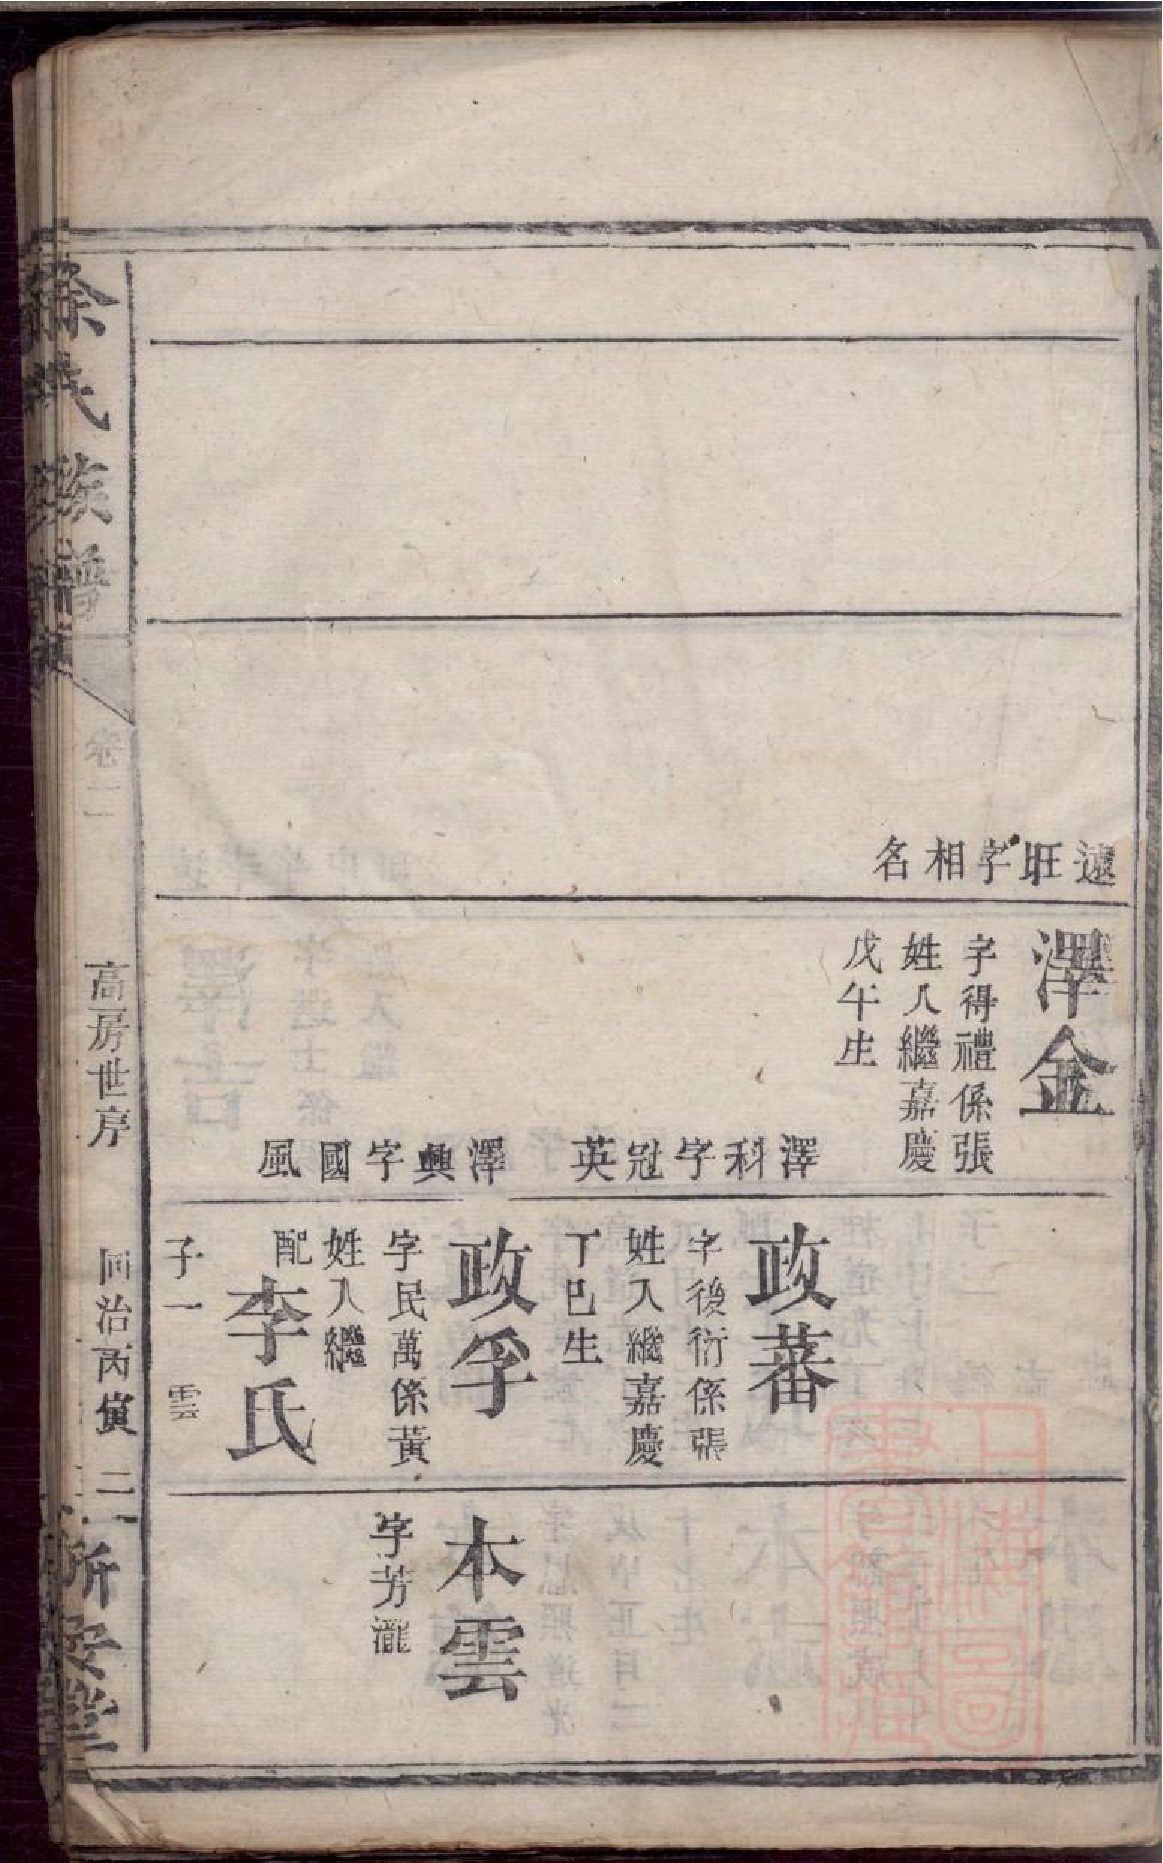 遠旺字相名
澤金
字得禮係張
姓人繼嘉慶
戊午生
澤科字冠英
澤興字國風
政蕃
字後衍係張
姓入繼嘉慶
丁巳生
政孚
字民萬係黃
姓入繼
配
李氏
子一 雲
本雲
字芳瀧
徐氏族譜
卷二
高房世序
同治丙寅
二
所安堂